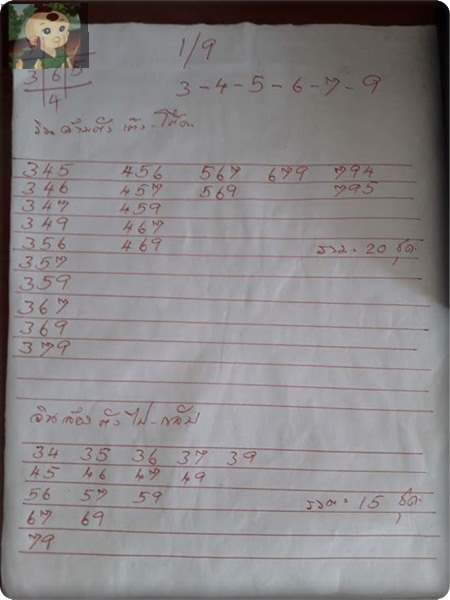 1/9
3 6 5
4
3-4-5-6-7-9
วิน สามตัว เต็ง-โต๊ด
345 456 567 679 794
346 457 569 795
347 459
349 467
356 469 รวม = 20 ชุด
357
359
367
369
379
วินสองตัว ไป-กลับ
34 35 36 37 39
45 46 47 49
56 57 59 รวม = 15 ชุด
67 69
79